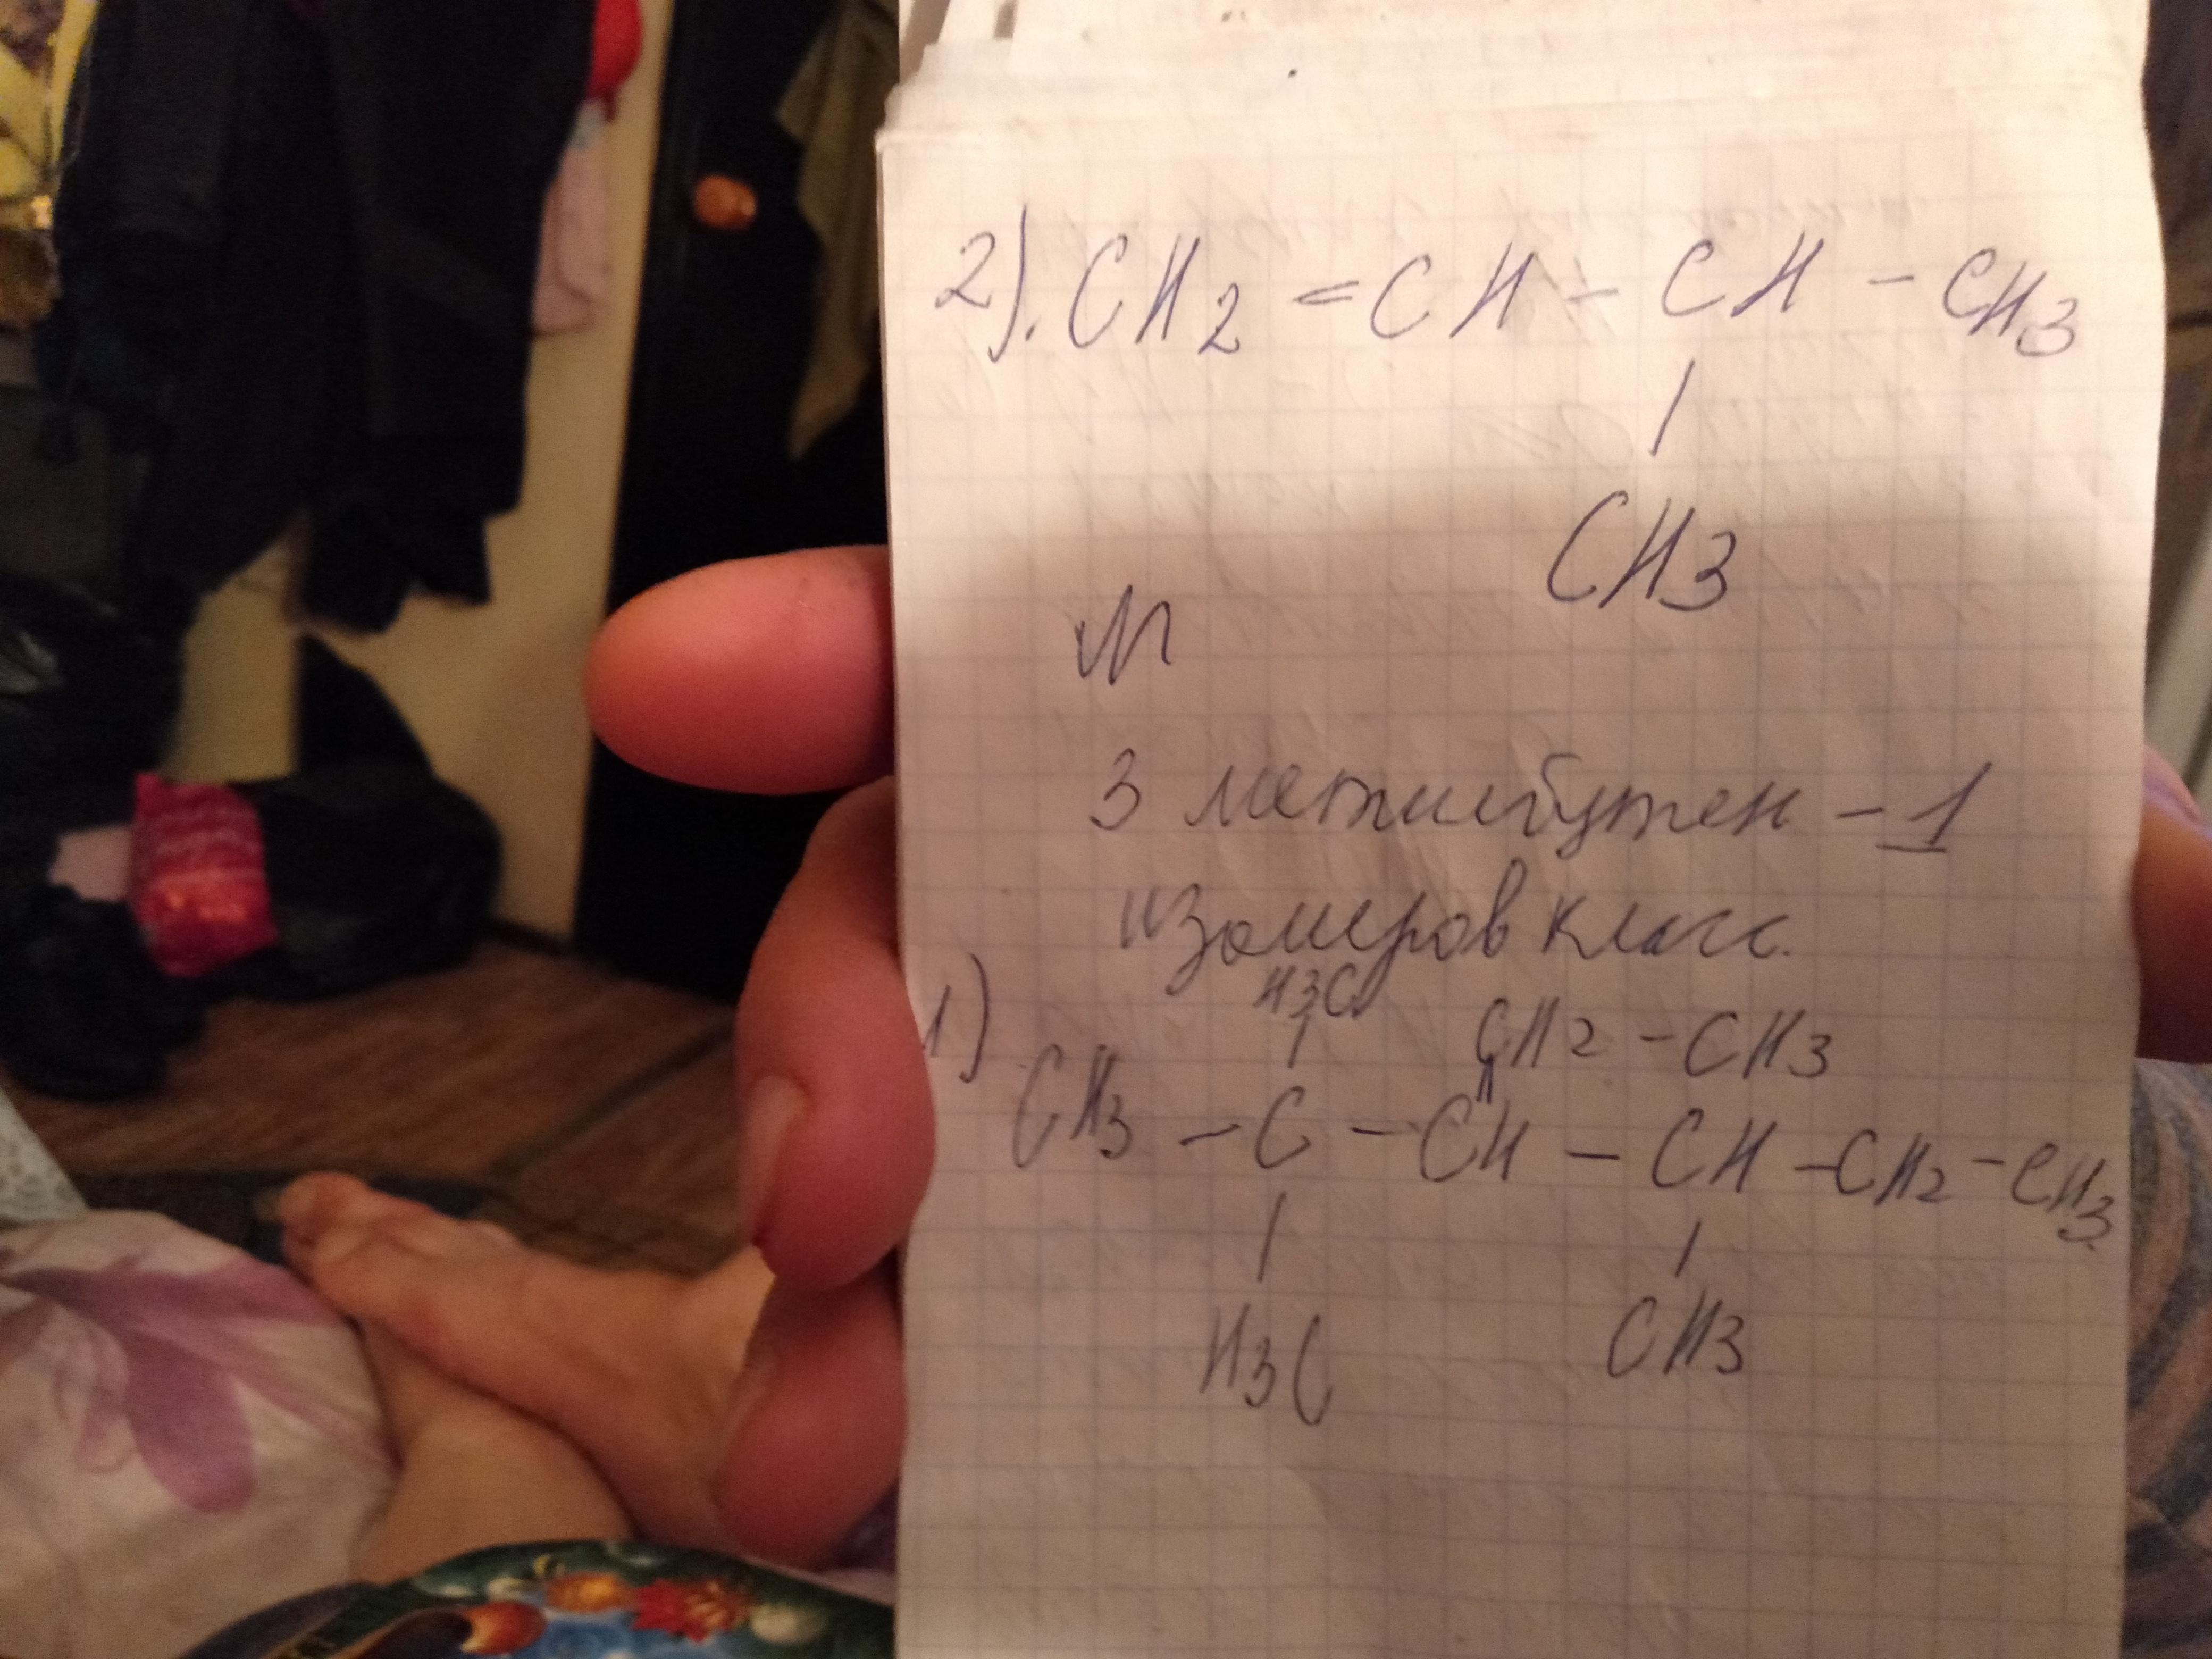 2). CH2 = CH - CH - CH3
|
CH3
3 метилбутен - 1
изомеров класс.
H3C
| CH2 - CH3
1) CH3 - C - CH - CH - CH2 - CH3
| |
H3C CH3